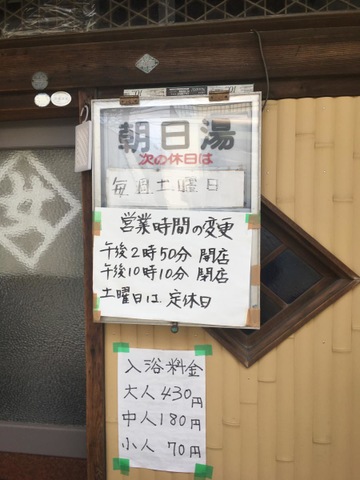 朝日湯
次の休日は
毎週土曜日
営業時間の変更
午後2時50分 開店
午後10時10分 閉店
土曜日は定休日
入浴料金
大人430円
中人180円
小人 70円
女